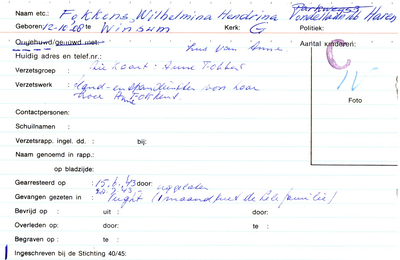 Naam etc.: Fokkens, Wilhelmina Hendrina Parkweg 53 Vondellaan Haren
Geboren: 12-10-'08 te Winsum Kerk: G Politiek:
Ongehuwd/gehuwd met: Zus van Anne Aantal kinderen:
Huidig adres en telef.nr.:
Verzetsgroep : Zie kaart: Anne Fokkens
Verzetswerk : Hand- en spandiensten voor haar
broer Anne Fokkens.
Contactpersonen:
Schuilnaam :
Verzetsrapp. ingel. dd. : bij:
Naam genoemd in rapp.:
op bladzijde:
Foto
Gearresteerd op : 15.6.'43 door: opgepakt
Gevangen gezeten in : Vught (1 maand met de hele familie)
Bevrijd op : uit : door:
Overleden op : door: te :
Begraven op : te :
Ingeschreven bij de Stichting 40/45: